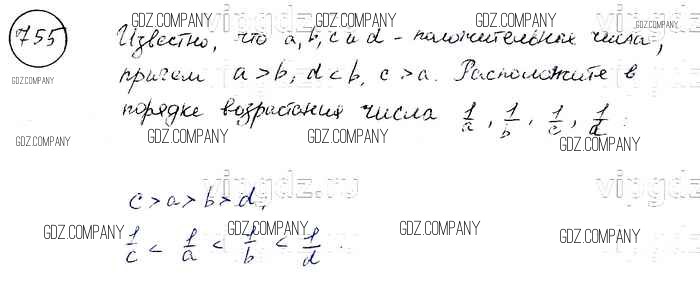 755
Известно, что a, b, c и d - положительные числа,
причем a > b, d < b, c > a. Расположите в
порядке возрастания числа 1/a, 1/b, 1/c, 1/d:
c > a > b > d,
1/c < 1/a < 1/b < 1/d.
GDZ.COMPANY
GDZ.COMPANY
GDZ.COMPANY
GDZ.COMPANY
GDZ.COMPANY
GDZ.COMPANY
GDZ.COMPANY
GDZ.COMPANY
GDZ.COMPANY
GDZ.COMPANY
GDZ.COMPANY
GDZ.COMPANY
GDZ.COMPANY
vipgdz.ru
vipgdz.ru